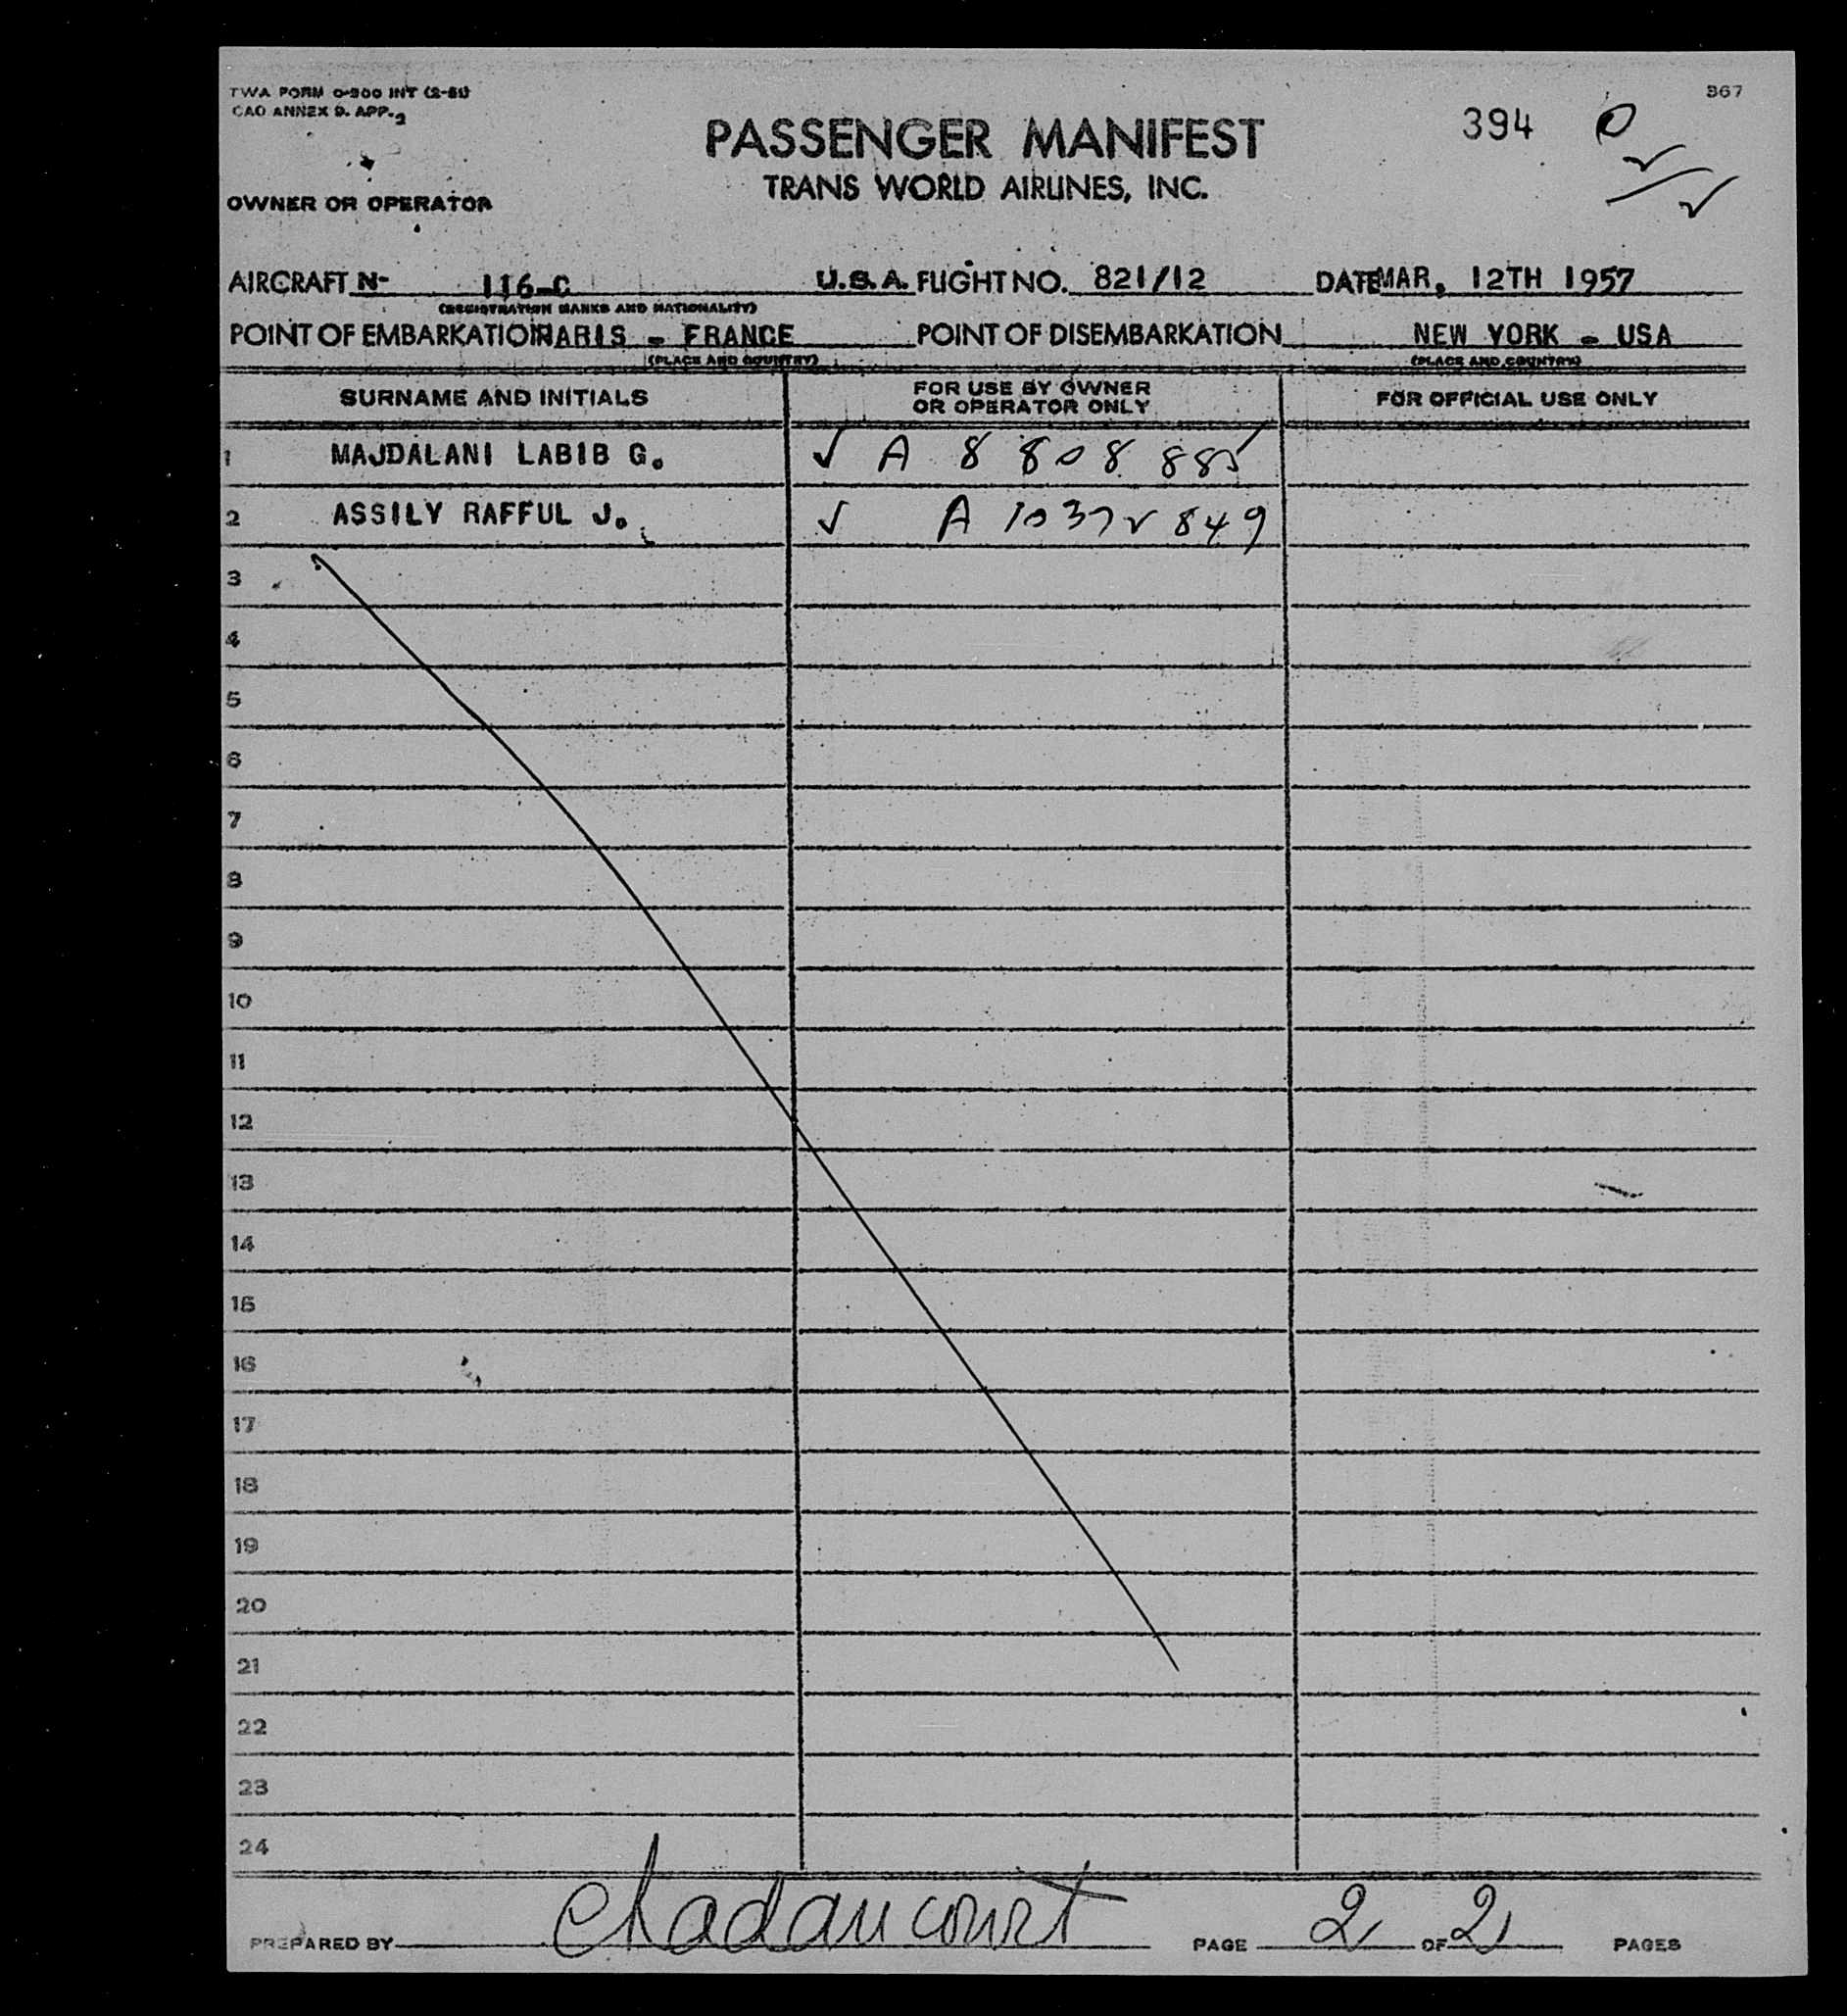 TWA FORM O-900 INT (2-51)
CAO ANNEX 9. APP. 2
367
394
PASSENGER MANIFEST
TRANS WORLD AIRLINES, INC.
OWNER OR OPERATOR
AIRCRAFT N- 116-C U.S.A. FLIGHT NO. 821/12 DATE MAR, 12TH 1957
(REGISTRATION MARKS AND NATIONALITY)
POINT OF EMBARKATION PARIS - FRANCE POINT OF DISEMBARKATION NEW YORK - USA
(PLACE AND COUNTRY) (PLACE AND COUNTRY)
SURNAME AND INITIALS FOR USE BY OWNER OR OPERATOR ONLY FOR OFFICIAL USE ONLY
1 MAJDALANI LABIB G. ✓ A 8 808 885
2 ASSILY RAFFUL J. ✓ A 10372849
3
4
5
6
7
8
9
10
11
12
13
14
15
16
17
18
19
20
21
22
23
24
PREPARED BY Chadaucourt PAGE 2 OF 2 PAGES